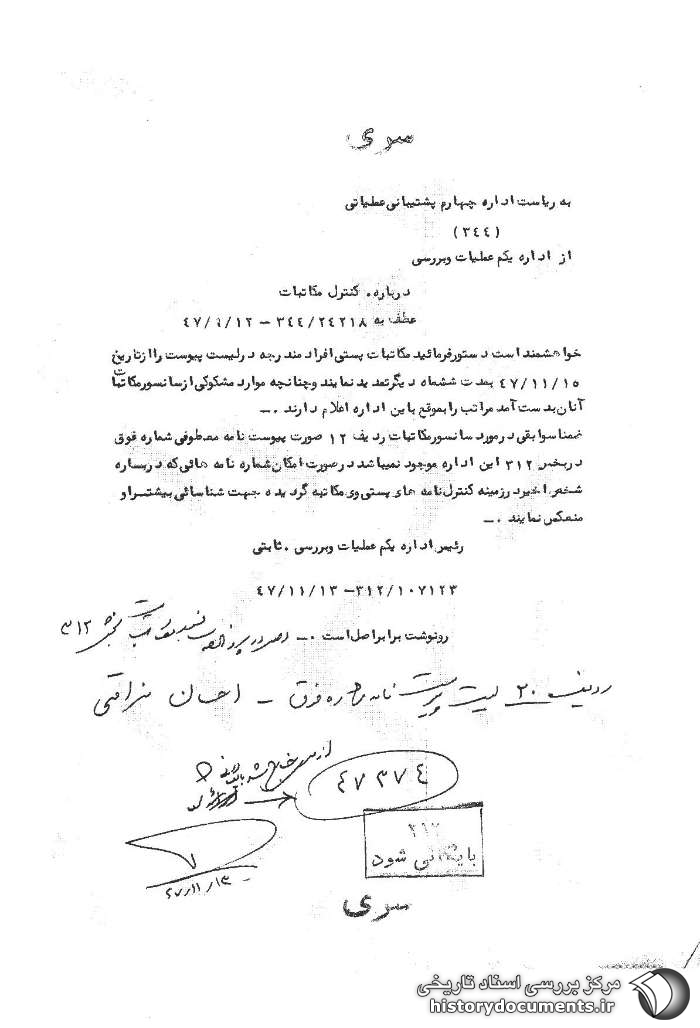 سری
به ریاست اداره چهارم پشتیبانی عملیاتی
(٣٤٤)
از اداره یکم عملیات وبررسی
درباره. کنترل مکاتبات
عطف به ٣٤٤/٢٤٢١٨ – ٤٧/٩/١٢
خواهشمند است دستورفرمائید مکاتبات پستی افراد مندرجه درلیست پیوست را ازتاریخ
٤٧/١١/١٥ بمدت ششماه دیگرتمدید نمایند وچنانچه موارد مشکوکی ازسانسورمکاتبات
آنان بدست آمد مراتب را بموقع باین اداره اعلام دارند .ـ
ضمنا سوابقی درمورد سانسورمکاتبات ردیف ١٢ صورت پیوست نامه معطوفی شماره فوق
دربخش ٣١٢ این اداره موجود نمیباشد درصورت امکان شماره نامه هائی که درباره
شخص اخیر درزمینه کنترل نامه های پستی وی مکاتبه گردیده جهت شناسائی بیشتر او
منعکس نمایند .ـ
رئیس اداره یکم عملیات وبررسی . ثابتی
٣١٢/١٠٧١٢٣ – ٤٧/١١/١٣
رونوشت برابراصل است .ـ
بخش ٣١٢
ردیف ٢٠ لیست پیوست نامه شماره فوق – احسان نراقی
٤٧٣٧٤
٣١٢
بایگانی شود
٤٧/١١/١٣
سری
مرکز بررسی اسناد تاریخی
historydocuments.ir